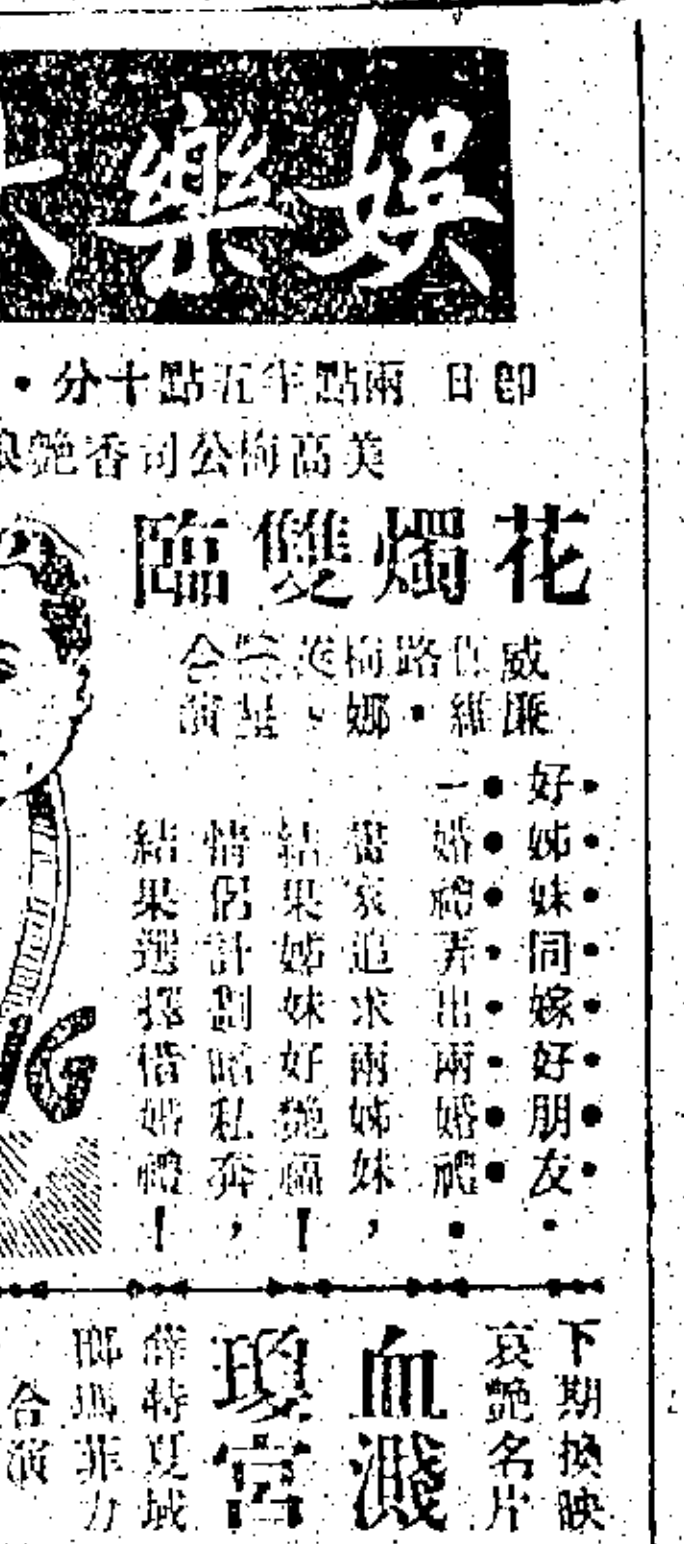 娛樂
即日 兩點半五點十分・
美高梅公司香艷
花燭雙臨
威廉保維路・梅娜 星合演
好姊妹同嫁好朋友・
一婚禮弄出兩婚禮・
畫家追求兩姊妹，
結果姊妹好艷福！
情侶計劃暗私奔，
結果選擇借婚禮！
下期換映
哀艷名片
血濺
瓊宮
薛特夏域
瑪菲力
合演